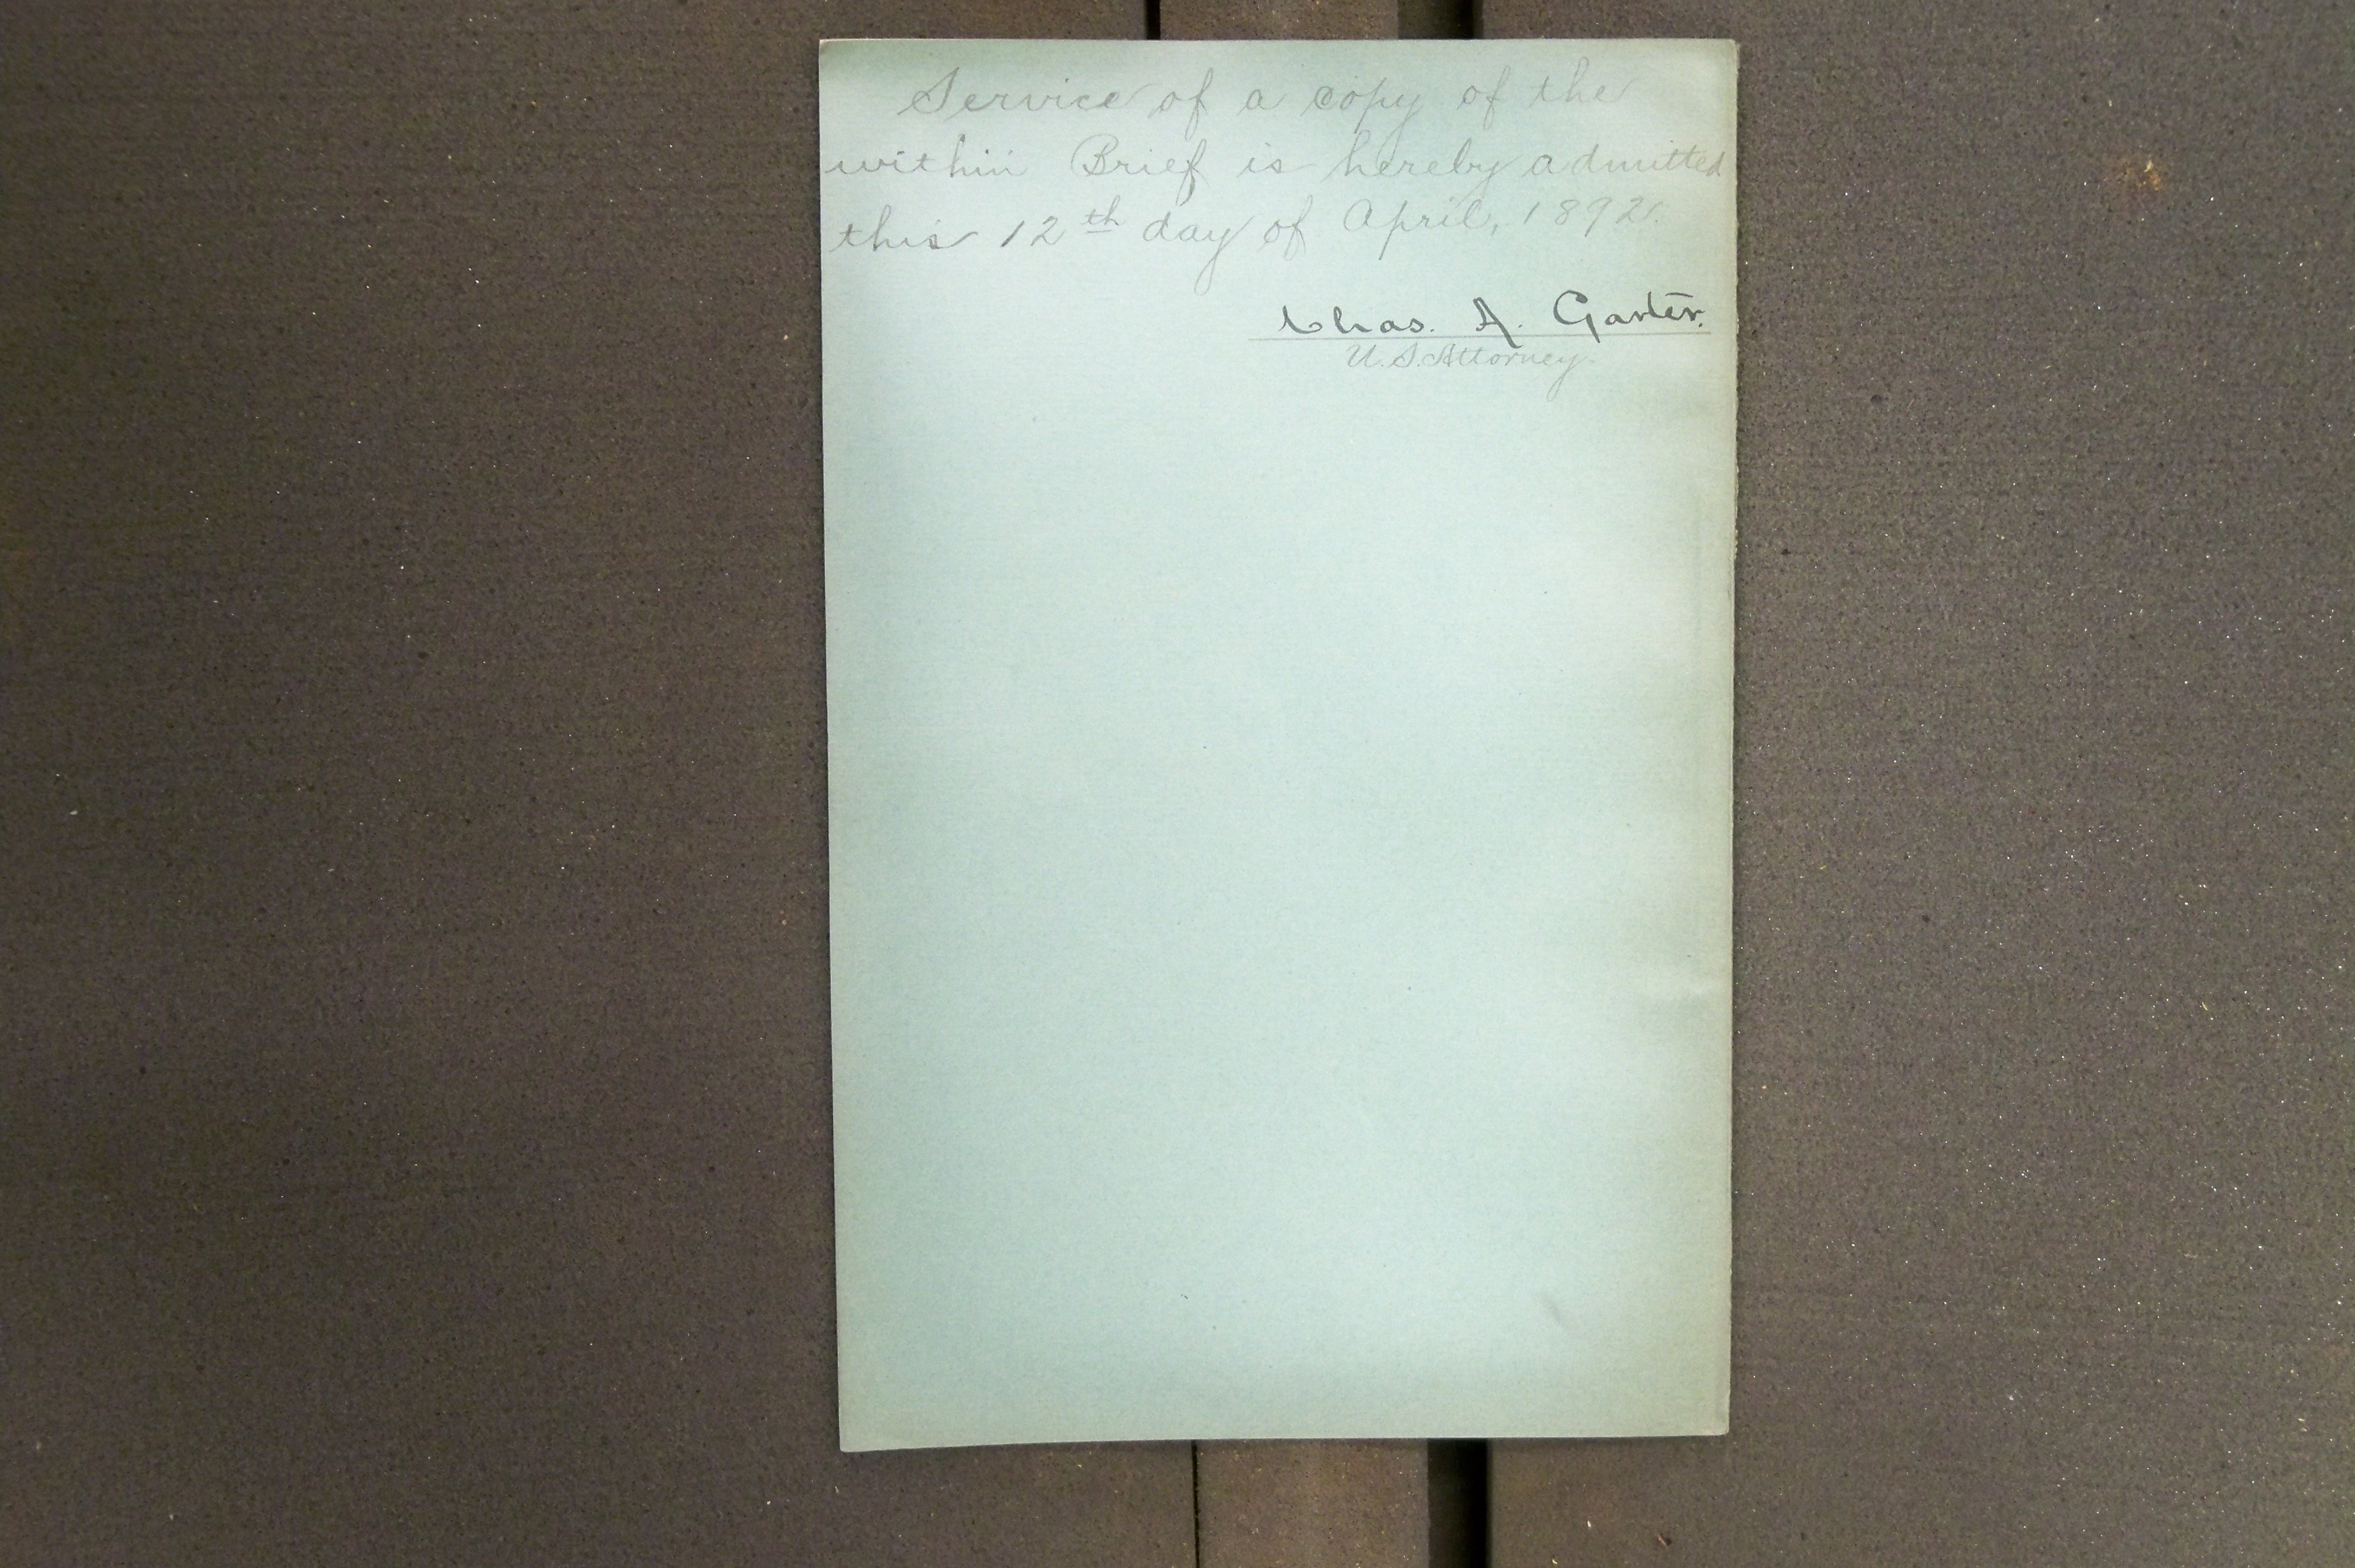 Service of a copy of the
within Brief is hereby admitted
this 12th day of April, 1892.
Chas. A. Garter.
U.S. Attorney.